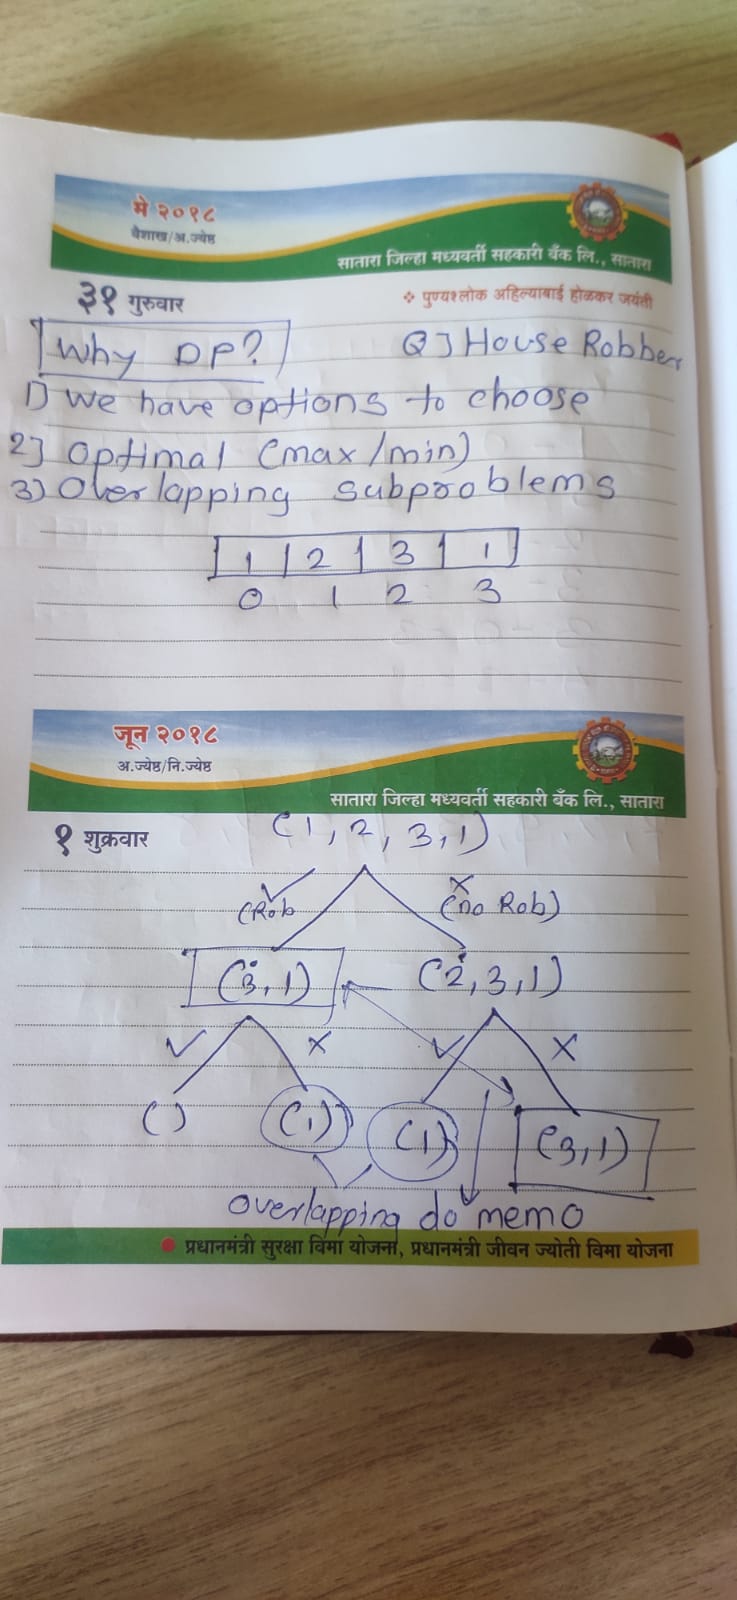 मे २०१८
वैशाख/अ.ज्येष्ठ
सातारा जिल्हा मध्यवर्ती सहकारी बँक लि., सातारा
३१ गुरुवार
❖ पुण्यश्लोक अहिल्याबाई होळकर जयंती
Why DP? Q] House Robber
1) We have options to choose
2] Optimal (max/min)
3) Overlapping subproblems
1 2 3 1
0 1 2 3
जून २०१८
अ.ज्येष्ठ/नि.ज्येष्ठ
सातारा जिल्हा मध्यवर्ती सहकारी बँक लि., सातारा
१ शुक्रवार
(1, 2, 3, 1)
✓ x
(Rob (no Rob)
(3, 1) (2, 3, 1)
✓ x ✓ x
() (1) (1) (3, 1)
overlapping do memo
● प्रधानमंत्री सुरक्षा विमा योजना, प्रधानमंत्री जीवन ज्योती विमा योजना